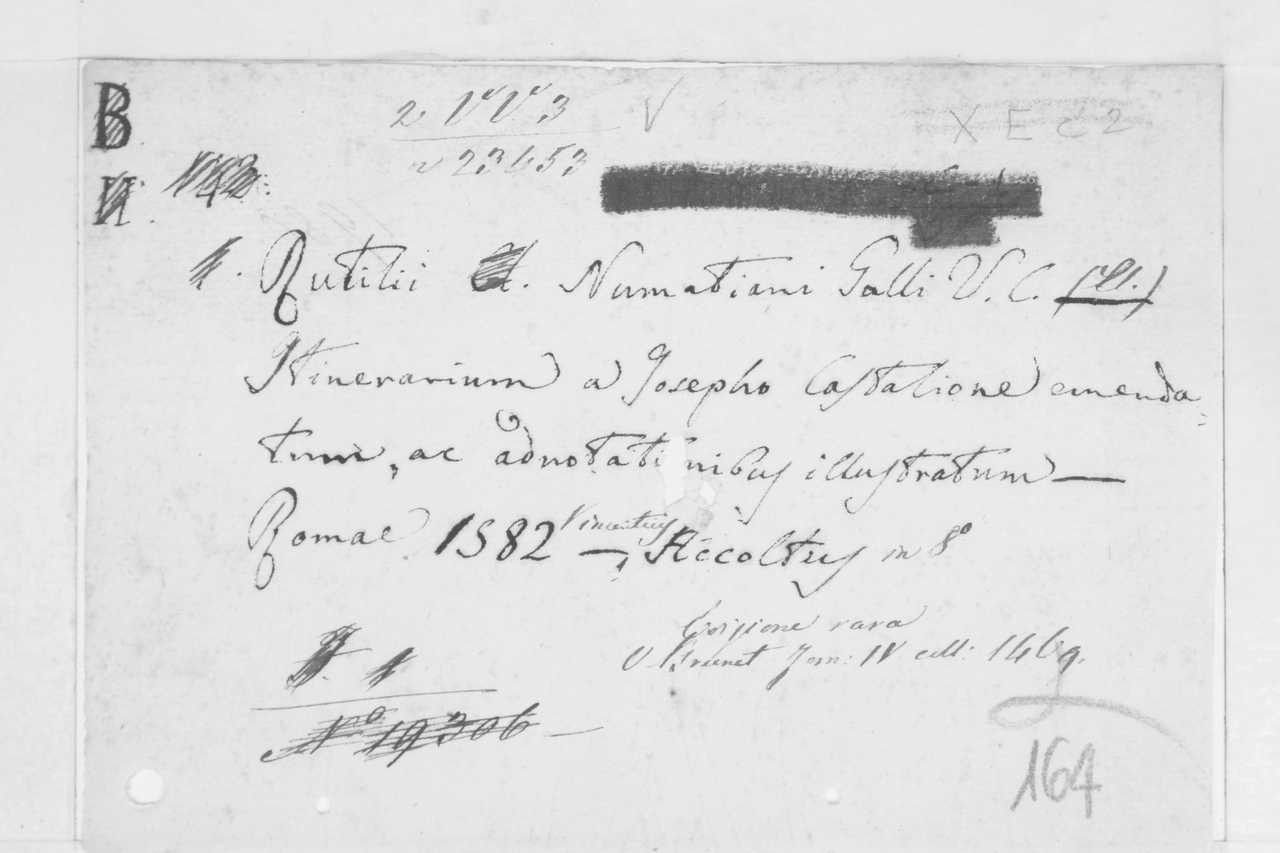 B
2 VV 3 V X E C 2
23653
Rutilii Cl. Numatiani Galli V. C. (Cl.)
Itinerarium a Josepho Castalione emenda=
tum, ac adnotationibus illustratum —
Romae 1582 — Vincentius Accoltus in 8°
Edizione rara
V. Brunet Tom: IV coll: 1469.
N° 19306
164